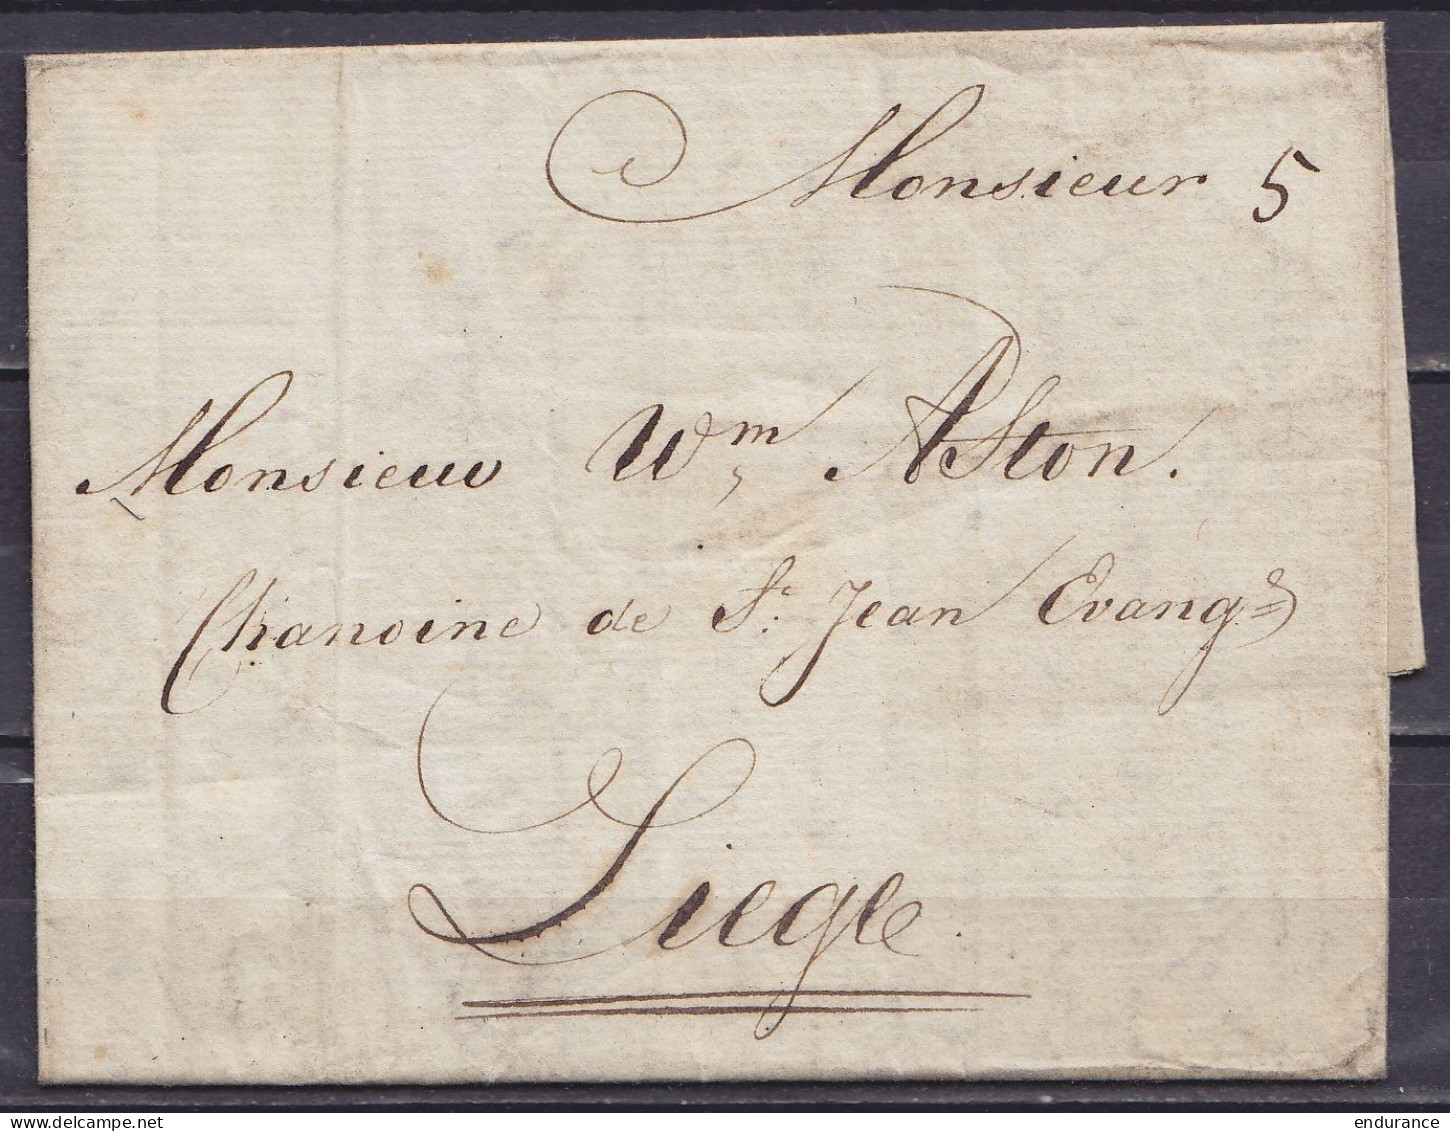 Monsieur 5
Monsieur Wm Aston.
Chanoine de St. Jean Evangе
Liege.
endurance